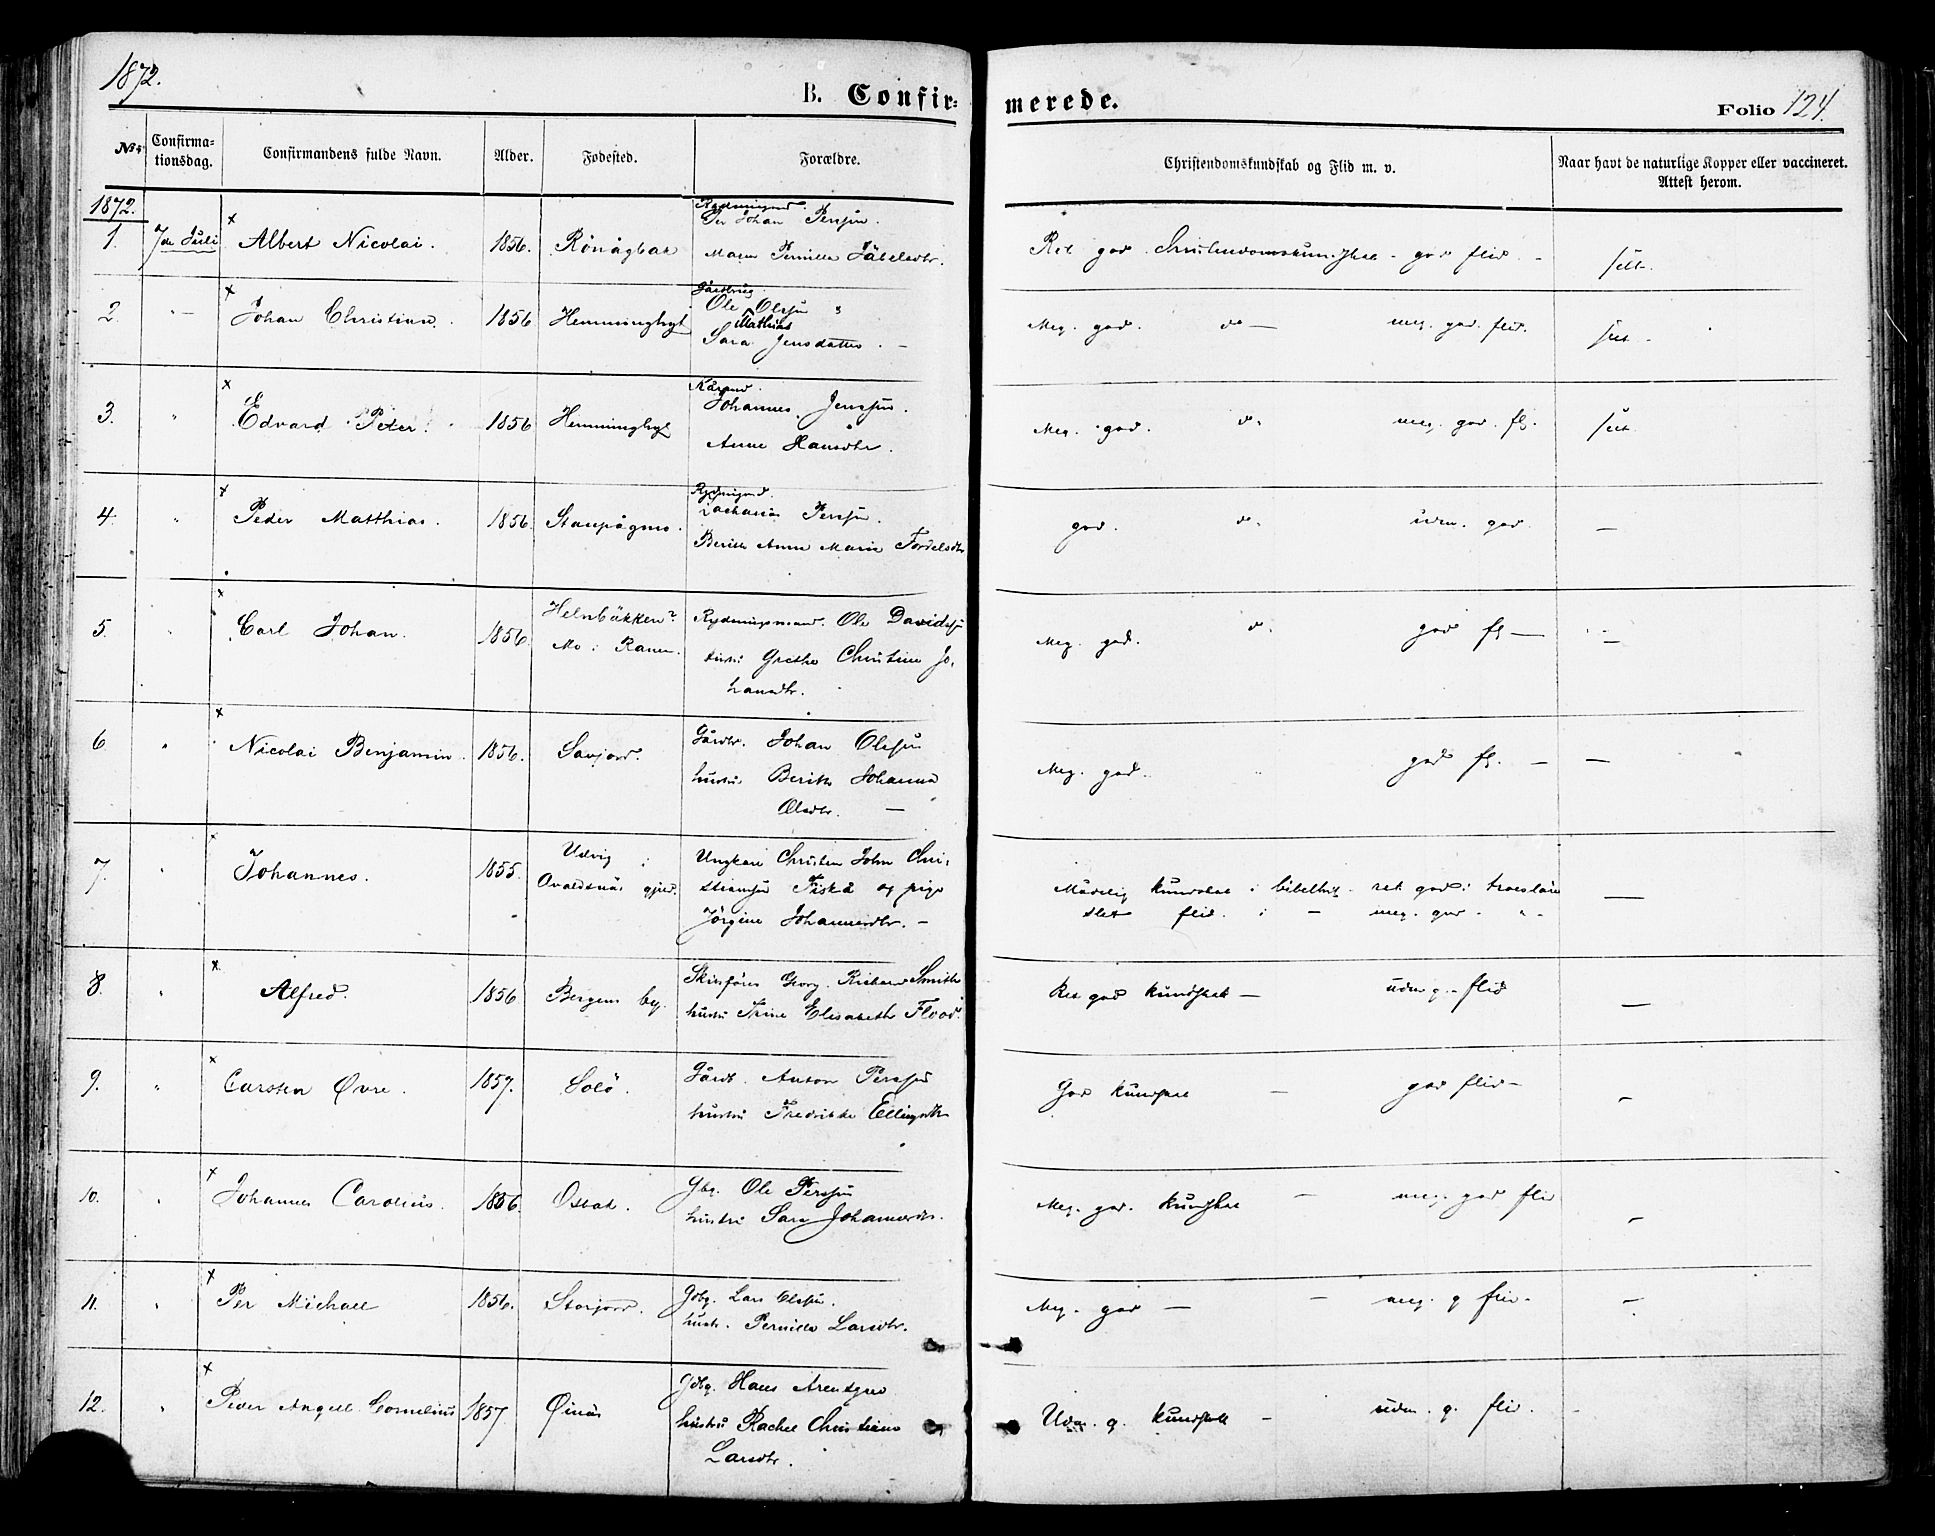 1872.
B. Confir-
merede.
Folio 124.
No.
Confirma-
tionsdag.
Confirmandens fulde Navn.
Alder.
Fødested.
Forældre.
Christendomskundskab og Flid m. v.
Naar havt de naturlige Kopper eller vaccineret.
Attest herom.
1872.
1. 7de Juli Albert Nicolai. 1856.
Per Johan Perssøn.
Maren Pernille
Ret god Christendomskundskab - god flid. -
2. "— Johan Christian. 1856 Hemminghyt
Ole Olssøn
Mathias
Sara Jensdatter. -
Meg. god. do — meg. god flid.
3. " Edvard Peter. 1856 Hemminghyt
Johannes Jenssøn.
Anne Hansdtr.
Meg. god. do meg. god. fl.
4. " Peder Matthias. 1856.
Zacharias Perssøn.
Berith Anne Marie
god. do. udm. god.
5. " Carl Johan. 1856.
Mo i Ranen.
Rydningsmand. Ole Davidsøn
hustru Grethe Christine Jo-
hansdtr.
Meg. god. do god fl —
6 " Nicolai Benjamin. 1856. Savjord.
Gårdbr. Johan Olssøn
hustru Berith Johanna
Olsdtr. —
Meg. god. " god fl. — —
7. " Johannes. 1855.
Udvig i
Ovaldsnäs gjeld.
Ungkarl Christen John Chri-
stianssøn Fiskå og pige
Jörgine Johannesdtr. -
Mådelig kundskab i ret god i
slet flid. i — meg. god " "
8. " Alfred. 1856 Bergens by.
Skibsförer Georg Richard Smith
hustru Trine Elisabeth Flood.
Ret god kundskab — udm g. flid —
9. " Carsten Øvre. 1857. Solö.
Gårdb. Anton Perssøn
hustru Fredrikke Ellingsdtr
God kundskab — god flid —
10. " Johannes Carolius. 1856. Osbak.
Gbr. Ole Perssøn
hustru Sara Johannesdtr.
Meg. god. kundskab — meg. god flid —
11. " Per Michael 1856. Storjord.
Gdbr. Lars Olssøn.
hustr. Pernille Larsdtr.
Meg. god — — meg. g flid. —
12. " Peder Angell Cornelius 1857 Øinäs
Gdbr. Hans
hustru Rachel Christiane
Larsdtr.
Udm. g. kundskab — udm. g. flid. -